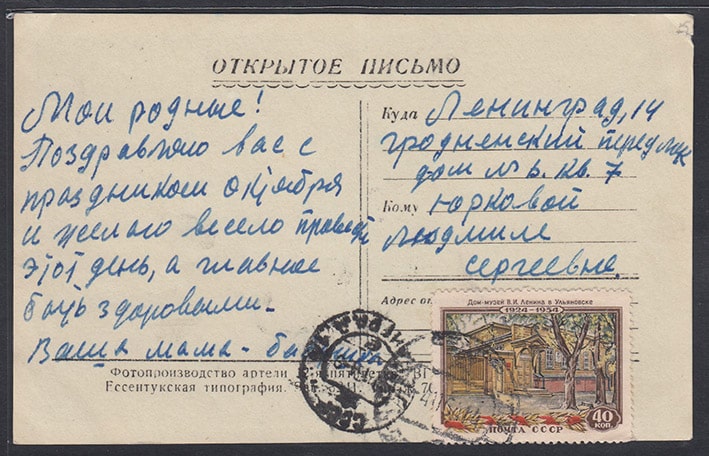 ОТКРЫТОЕ ПИСЬМО
Мои родные!
Поздравляю вас с
праздником октября
и желаю весело провести
этот день, а главное
быть здоровыми.
Ваша мама-
Куда Ленинград, 14
гродненский пер
дом № 6. кв. 7
Кому Юрковой
Людмиле
Сергеевне.
Адрес от
Фотопроизводство артели
Ессентукская типография.
Дом-музей В.И. Ленина в Ульяновске
1924-1954
40 КОП.
ПОЧТА СССР